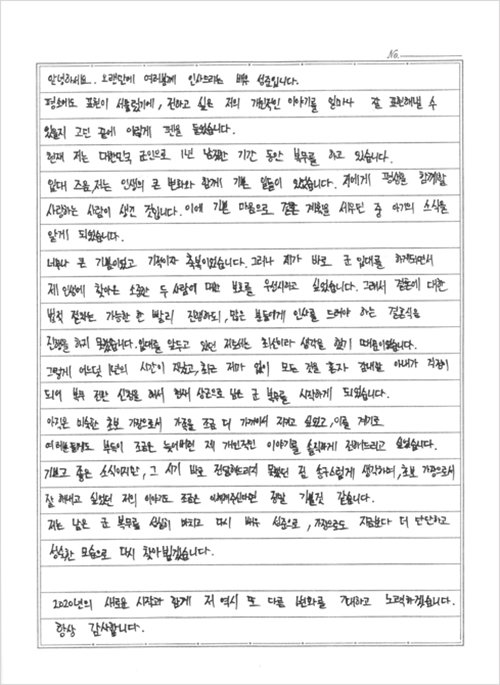 No.
안녕하세요.. 오랜만에 여러분께 인사드리는 배우 성준입니다.
평소에도 표현이 서툴렀기에, 전하고 싶은 저의 개인적인 이야기를 얼마나 잘 표현해낼 수
있을지 고민 끝에 이렇게 펜을 들었습니다.
현재 저는 대한민국 군인으로 1년 남짓한 기간 동안 복무를 하고 있습니다.
입대 즈음, 저는 인생의 큰 변화와 함께 기쁜 일들이 있었습니다. 저에게 평생을 함께할
사랑하는 사람이 생긴 것입니다. 이에 기쁜 마음으로 결혼 계획을 세우던 중 아기의 소식을
알게 되었습니다.
너무나 큰 기쁨이었고 기적이자 축복이었습니다. 그러나 제가 바로 군 입대를 하게되면서
제 인생에 찾아온 소중한 두 사람에 대한 보호를 우선시하고 싶었습니다. 그래서 결혼에 대한
법적 절차는 가능한 한 빨리 진행하되, 많은 분들에게 인사를 드려야 하는 결혼식을
진행을 하지 못했습니다. 입대를 앞두고 있던 저로서는 최선이라 생각을 했기 때문이었습니다.
그렇게 어느덧 1년의 시간이 지났고, 최근 저마 없이 모든 것을 혼자 감내할 아내가 걱정이
되어 복무 전환 신청을 해서 현재 상근으로 남은 군 복무를 시작하게 되었습니다.
아직은 미숙한 초보 가장으로서 가족을 조금 더 가까이서 지키고 싶었고, 이를 계기로
여러분들에게 부득이 조금은 늦어버린 제 개인적인 이야기를 솔직하게 전해드리고 싶었습니다.
기쁘고 좋은 소식이지만, 그 시기 바로 전달해드리지 못했던 점 송구스럽게 생각하며, 초보 가장으로서
잘 해내고 싶었던 저의 이야기도 조금은 이해해주신다면 정말 기쁠것 같습니다.
저는 남은 군 복무를 성실히 마치고 다시 배우 성준으로, 가장으로도 지금보다 더 단단하고
성숙한 모습으로 다시 찾아뵙겠습니다.
2020년의 새로운 시작과 함께 저 역시 또 다른 변화를 기대하고 노력하겠습니다.
항상 감사합니다.